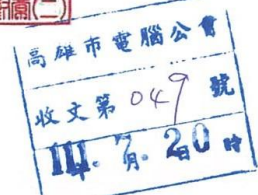 高雄市電腦公會
收文第 049 號
111. 7月. 20 時